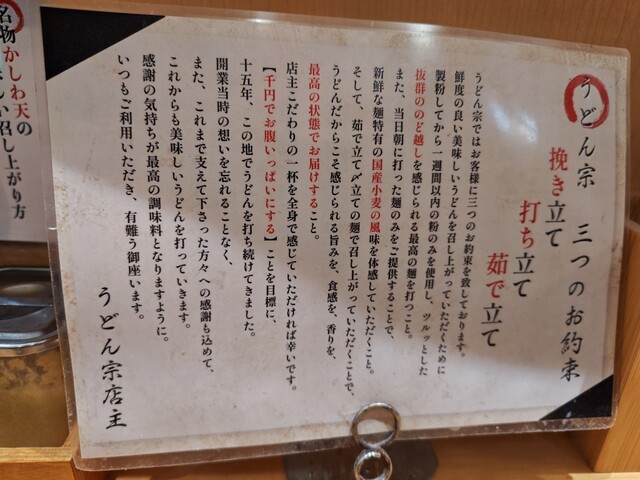 うどん宗 三つのお約束
挽き立て
打ち立て
茹で立て
うどん宗ではお客様に三つのお約束を致しております。
鮮度の良い美味しいうどんを召し上がっていただくために
製粉してから一週間以内の粉のみを使用し、ツルッとした
抜群ののど越しを感じられる最高の麺を打つこと。
また、当日朝に打った麺のみをご提供することで、
新鮮な麺特有の国産小麦の風味を体感していただくこと。
そして、茹で立て〆立ての麺で召し上がっていただくことで、
うどんだからこそ感じられる旨みを、食感を、香りを、
最高の状態でお届けすること。
店主こだわりの一杯を全身で感じていただければ幸いです。
【千円でお腹いっぱいにする】ことを目標に、
十五年、この地でうどんを打ち続けてきました。
開業当時の想いを忘れることなく、
また、これまで支えて下さった方々への感謝も込めて、
これからも美味しいうどんを打っていきます。
感謝の気持ちが最高の調味料となりますように。
いつもご利用いただき、有難う御座います。
うどん宗店主
名物かしわ天の
しい召し上がり方